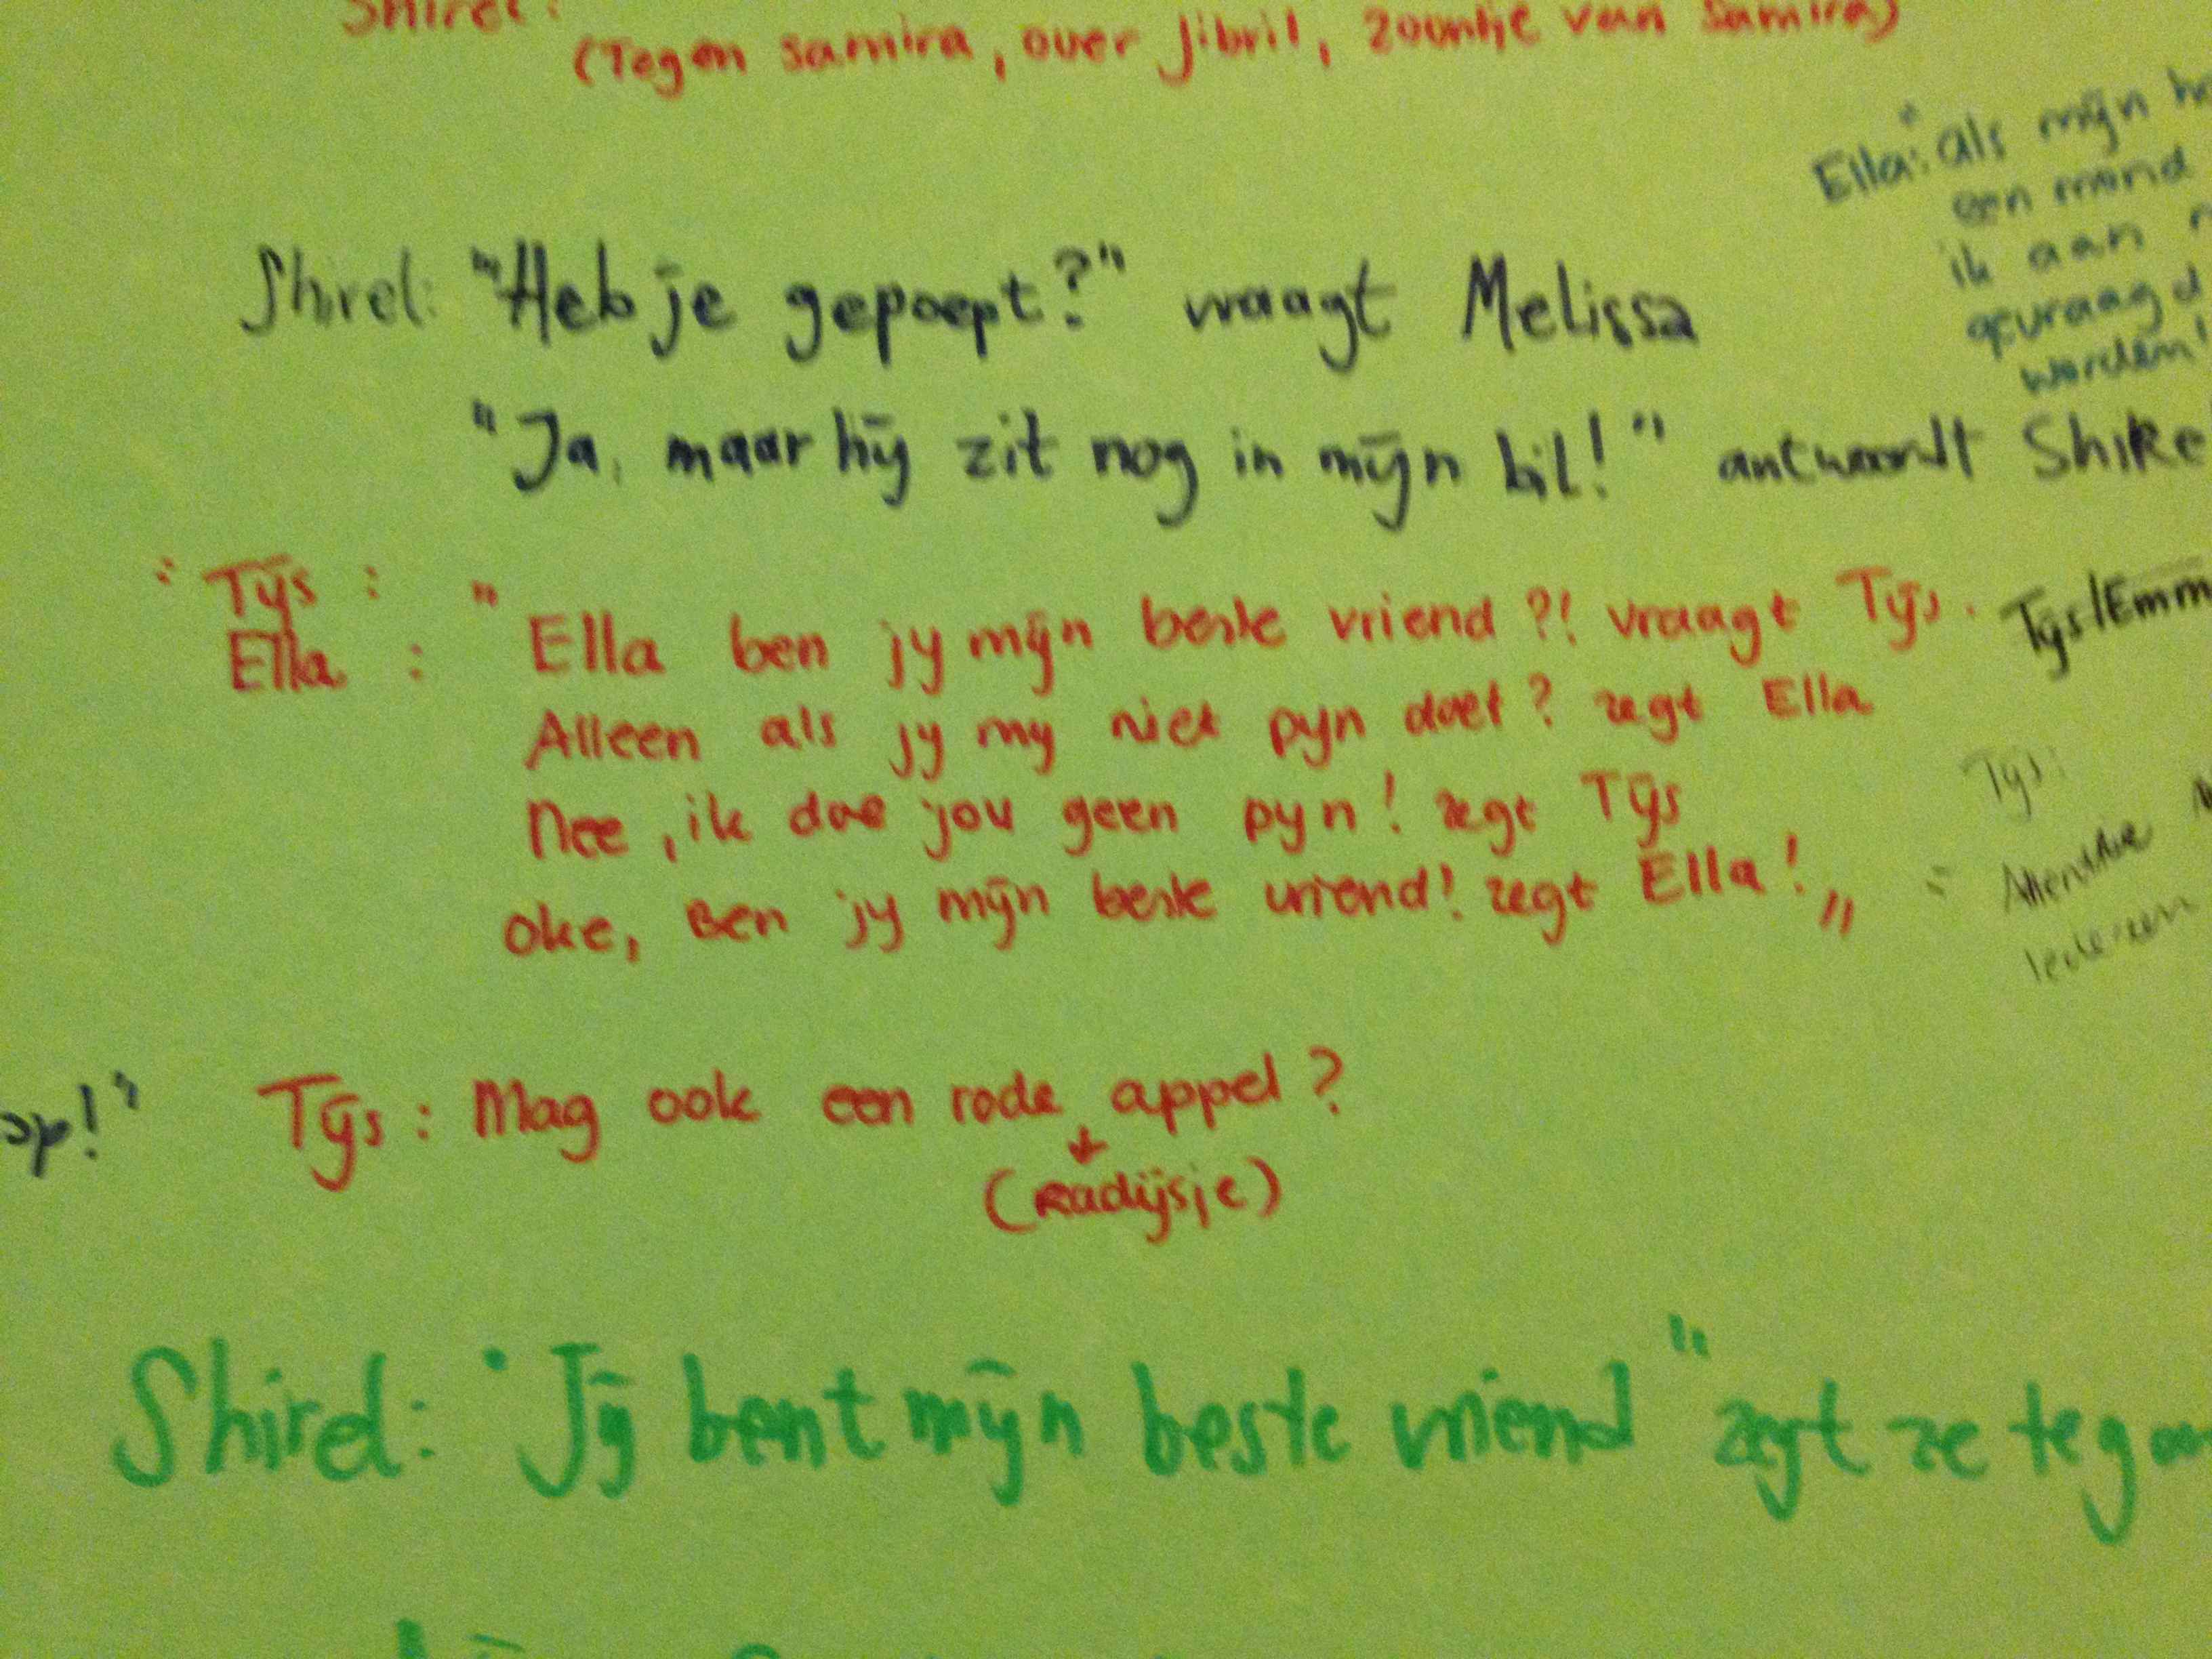 Shirel:
(Tegen Samira, over Jibril, zoontje van Samira)
Ella: "als mijn
een mond
ik aan
gevraagd
worden!
Shirel: "Heb je gepoept?" vraagt Melissa
"Ja, maar hij zit nog in mijn bil!" antwoordt Shire
"Tijs :
Ella :
" Ella ben jy mijn beste vriend?! vraagt Tijs.
Alleen als jy my niet pyn doet? zegt Ella
Nee, ik doe jou geen pyn! zegt Tijs
oke, Ben jy mijn beste vriend! zegt Ella! "
Tijs/Emm
Tijs:
iedereen
op!"
Tijs: Mag ook een rode appel?
(Radijsje)
Shirel: "Jij bent mijn beste vriend" zegt ze tegen